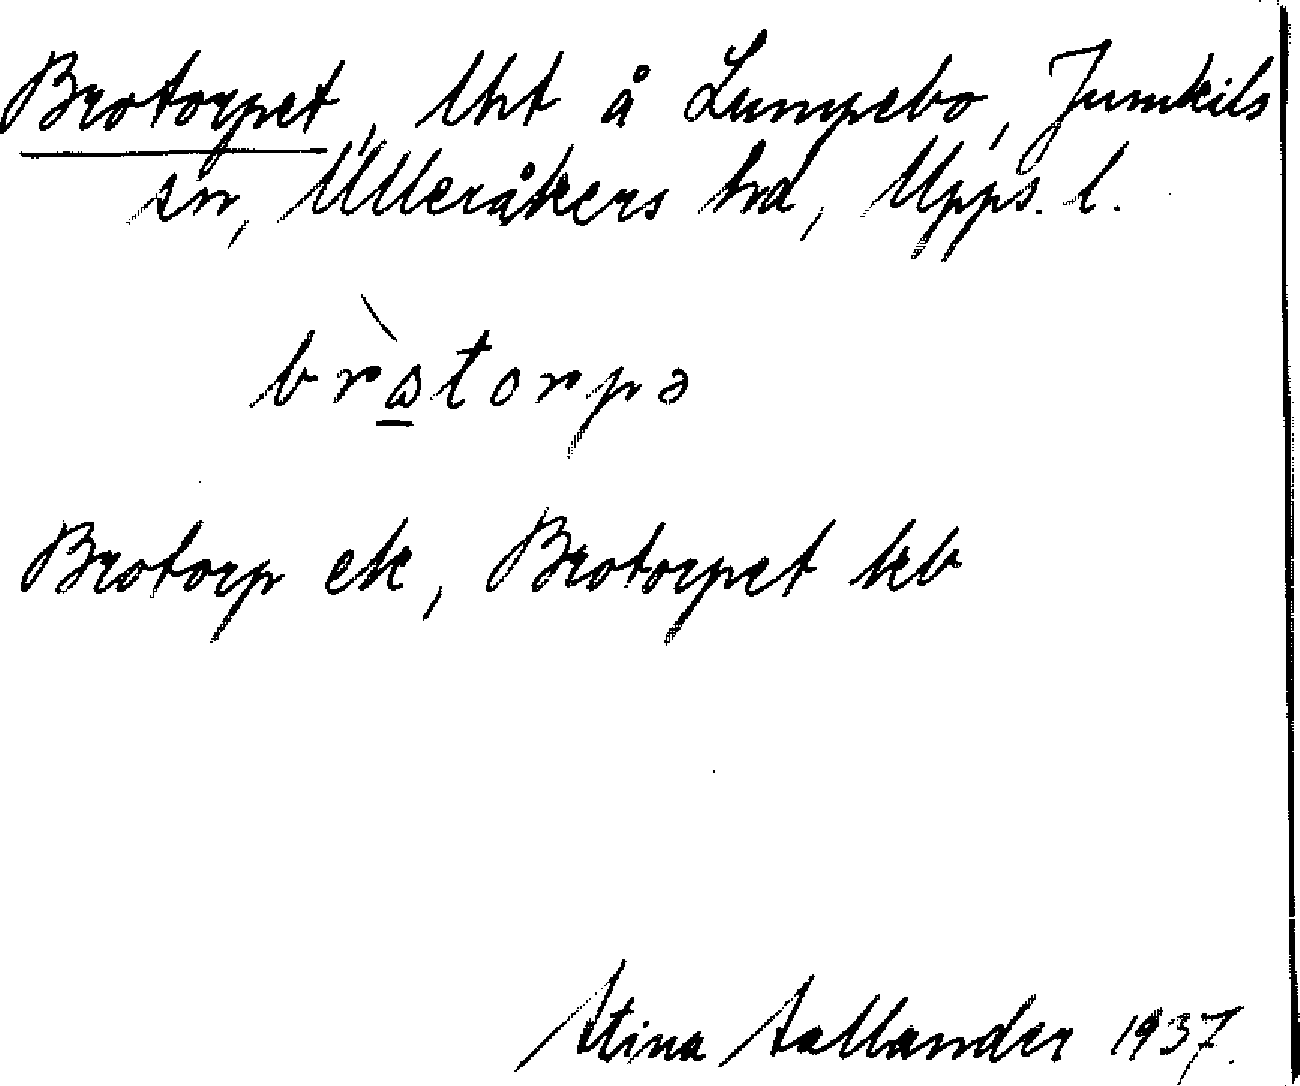 Brotorpet, lht å Lumpebo, Jumkils
sn, Ulleråkers hd, Upps. l.
brὰtorpə
Brotorp ek, Brotorpet kb
Stina Sallander 1937.